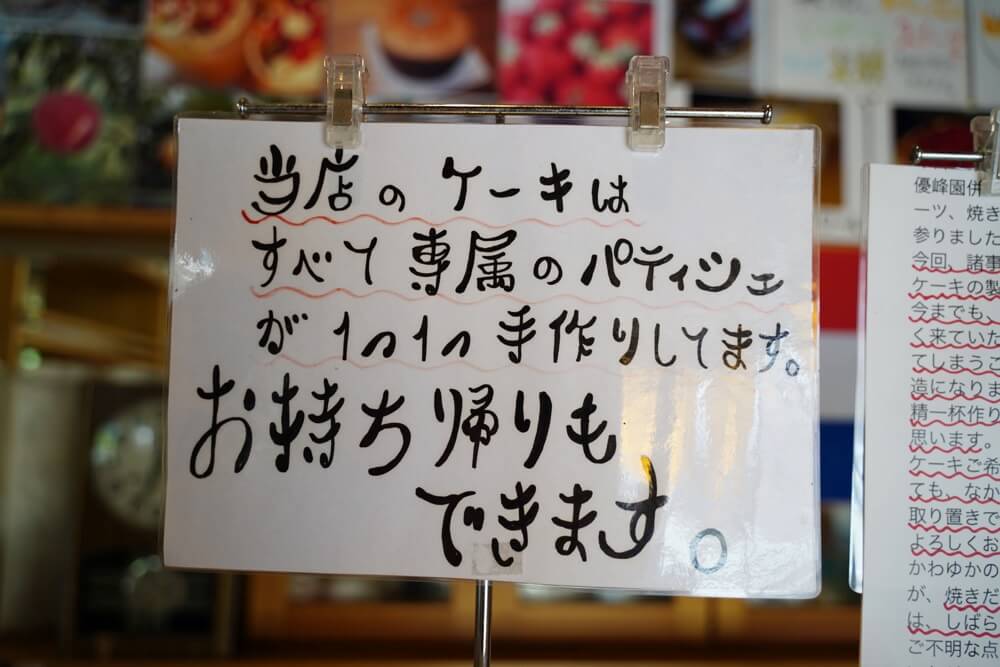 当店のケーキは
すべて専属のパティシェ
が1つ1つ手作りしてます。
お持ち帰りも
できます。
優峰園併
ーツ、焼き
参りました
今回、諸事
ケーキの製
今までも、
く来ていた
てしまうこ
造になりま
精一杯作り
思います。
ケーキご希
ても、なか
取り置きで
よろしくお
かわゆかの
が、焼きだ
は、しばら
ご不明な点